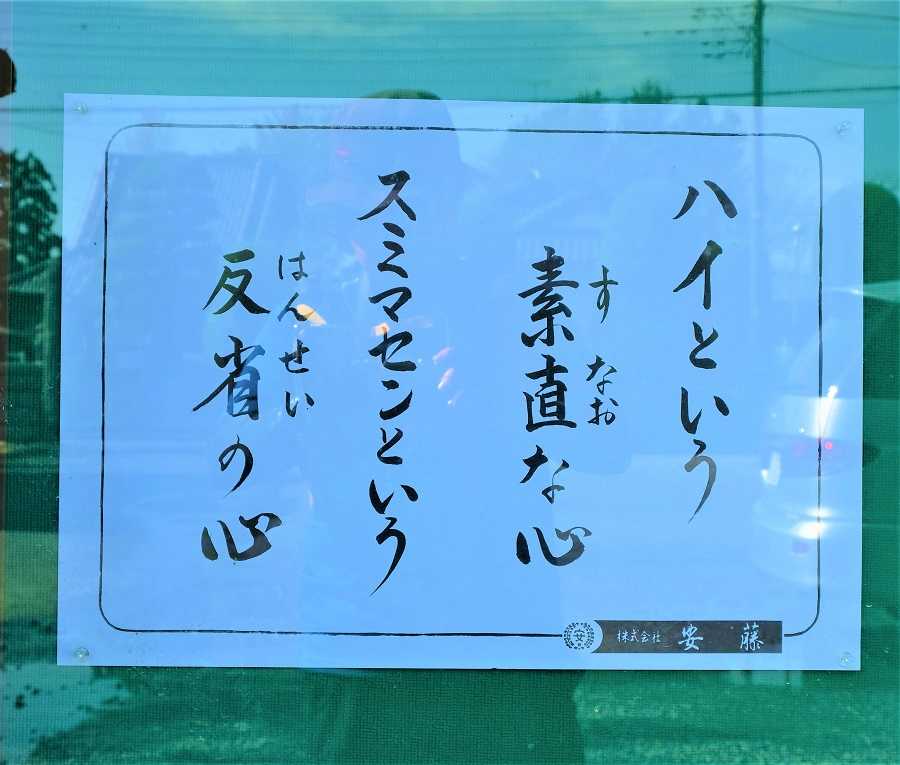 ハイという
すなお
素直な心
スミマセンという
はんせい
反省の心
株式会社 安藤